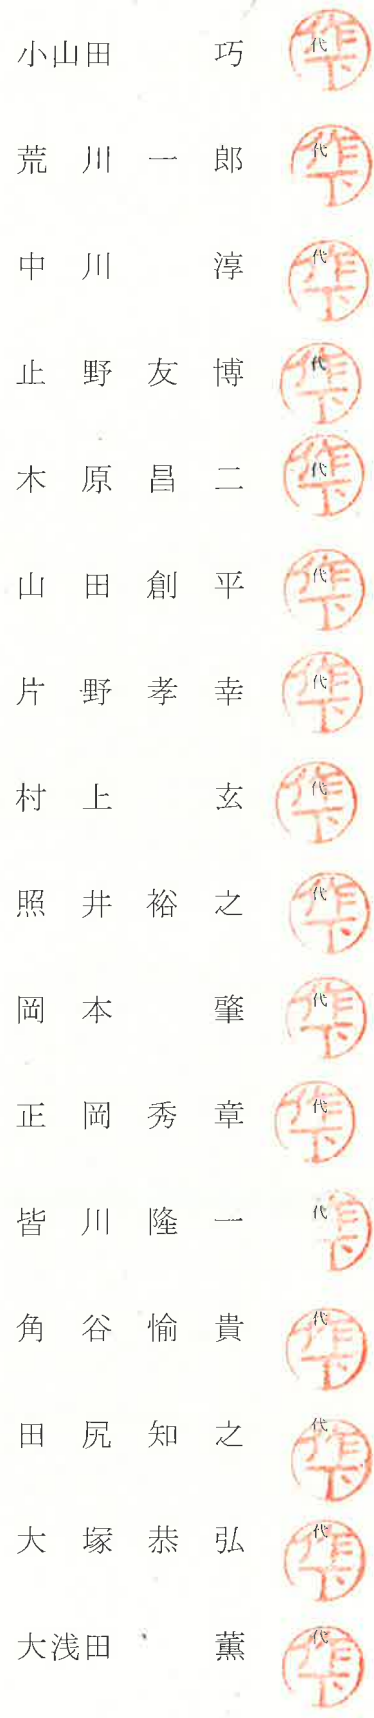 小山田 巧 代 作下
荒川一郎 代 作下
中川 淳 代 作下
止野友博 代 作下
木原昌二 代 作下
山田創平 代 作下
片野孝幸 代 作下
村上 玄 代 作下
照井裕之 代 作下
岡本 肇 代 作下
正岡秀章 代 作下
皆川隆一 代 作下
角谷愉貴 代 作下
田尻知之 代 作下
大塚恭弘 代 作下
大浅田 薫 代 作下